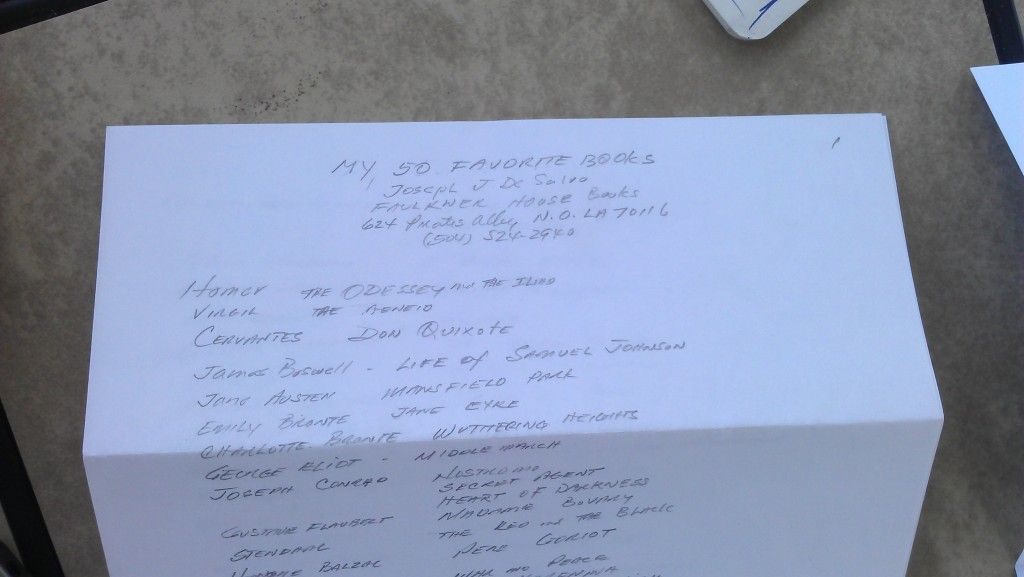 MY 50 FAVORITE BOOKS
Joseph J De Salvo
FAULKNER HOUSE Books
624 Pirates Alley N.O. LA 70116
(504) 524-2940
Homer THE ODESSEY AND THE ILIAD
VIRGIL THE AENEID
CERVANTES DON QUIXOTE
James Boswell - LIFE of SAMUEL JOHNSON
JANE AUSTEN MANSFIELD PARK
EMILY BRONTE JANE EYRE
CHARLOTTE BRONTE WUTHERING HEIGHTS
GEORGE ELIOT - MIDDLEMARCH
JOSEPH CONRAD NOSTROMO
SECRET AGENT
HEART OF DARKNESS
GUSTAVE FLAUBERT MADAME BOVARY
STENDAHL THE RED AND THE BLACK
HONORE BALZAC PERE GORIOT
WAR AND PEACE